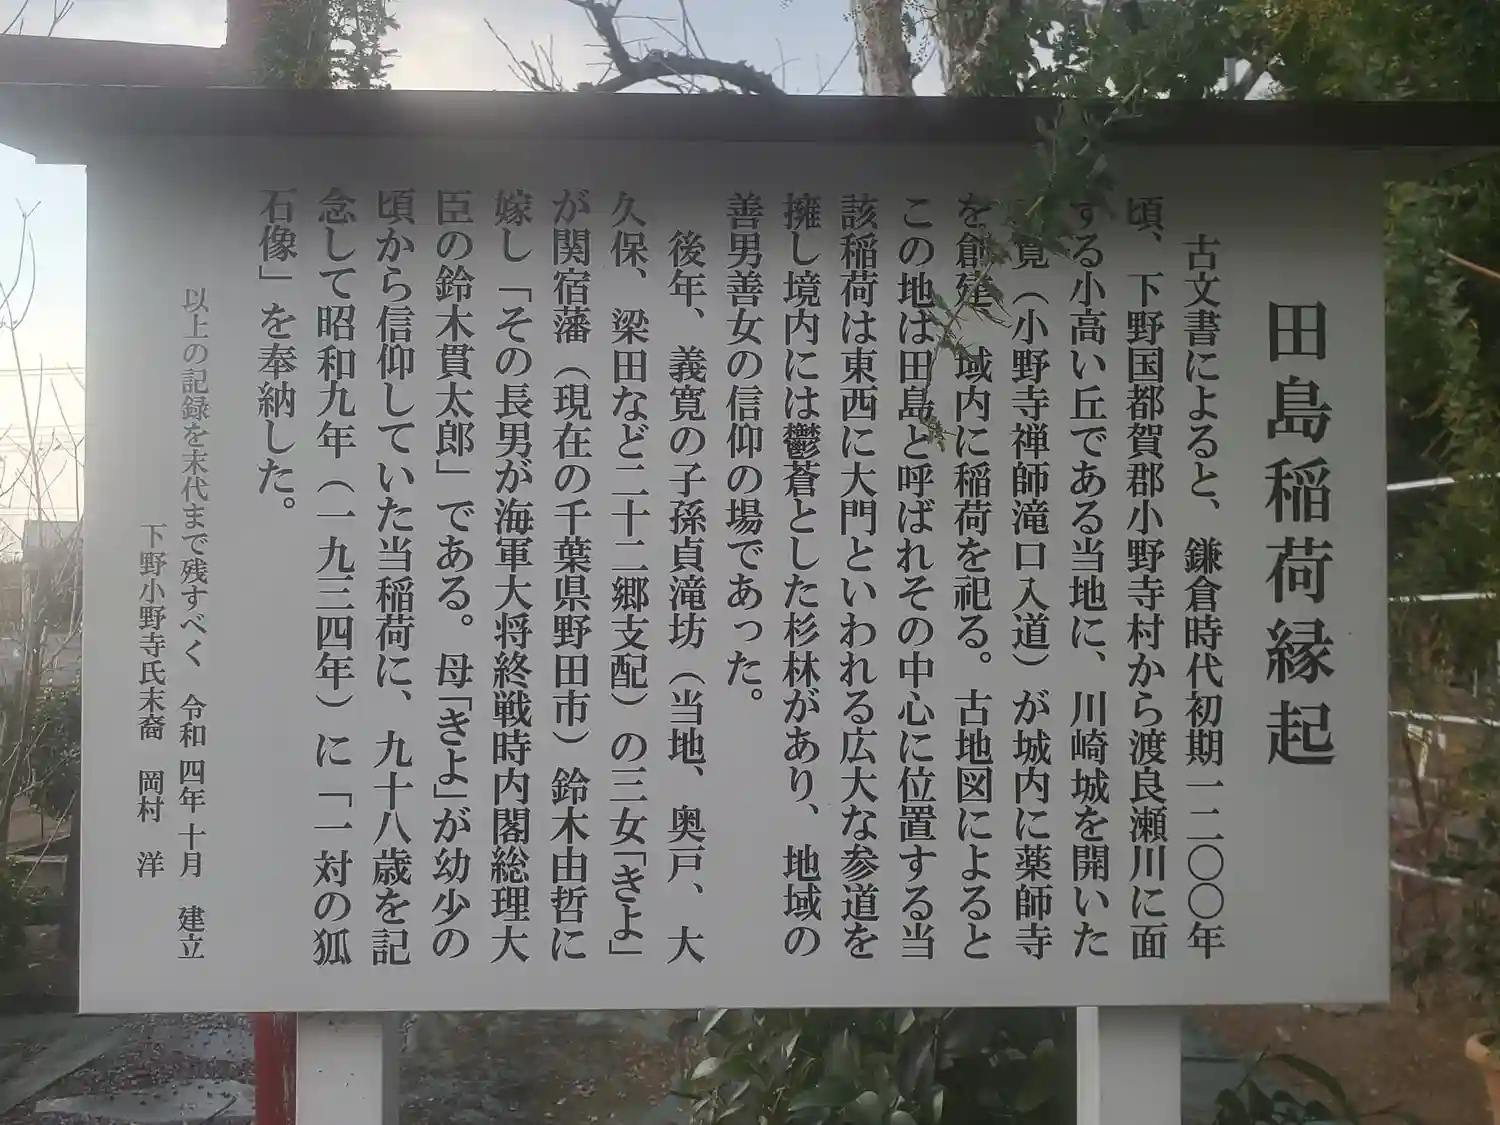 田島稲荷縁起
古文書によると、鎌倉時代初期一二〇〇年
頃、下野国都賀郡小野寺村から渡良瀬川に面
する小高い丘である当地に、川崎城を開いた
寛（小野寺禅師滝口入道）が城内に薬師寺
を創建 域内に稲荷を祀る。古地図によると
この地は田島と呼ばれその中心に位置する当
該稲荷は東西に大門といわれる広大な参道を
擁し境内には鬱蒼とした杉林があり、地域の
善男善女の信仰の場であった。
後年、義寛の子孫貞滝坊（当地、奥戸、大
久保、梁田など二十二郷支配）の三女「きよ」
が関宿藩（現在の千葉県野田市）鈴木由哲に
嫁し「その長男が海軍大将終戦時内閣総理大
臣の鈴木貫太郎」である。母「きよ」が幼少の
頃から信仰していた当稲荷に、九十八歳を記
念して昭和九年（一九三四年）に「一対の狐
石像」を奉納した。
以上の記録を末代まで残すべく 令和四年十月 建立
下野小野寺氏末裔 岡村 洋